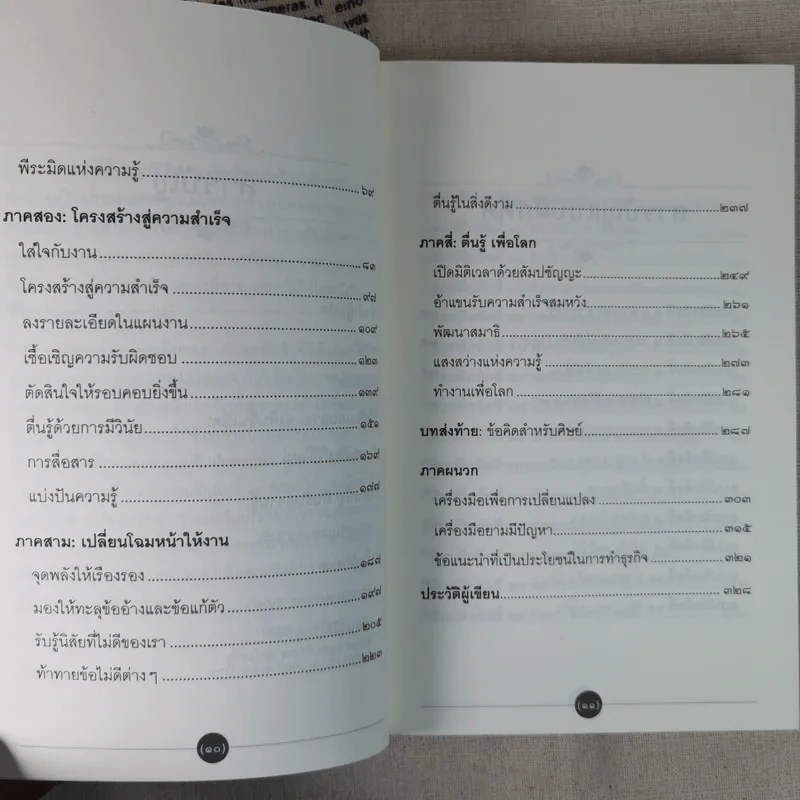 พีระมิดแห่งความรู้ ๖๙
ภาคสอง: โครงสร้างสู่ความสำเร็จ
ใส่ใจกับงาน ๘๓
โครงสร้างสู่ความสำเร็จ ๙๗
ลงรายละเอียดในแผนงาน ๑๐๙
เชื้อเชิญความรับผิดชอบ ๑๒๓
ตัดสินใจให้รอบคอบยิ่งขึ้น ๑๓๙
ตื่นรู้ด้วยการมีวินัย ๑๕๑
การสื่อสาร ๑๖๙
แบ่งปันความรู้ ๑๗๗
ภาคสาม: เปลี่ยนโฉมหน้าให้งาน
จุดพลังให้เรืองรอง ๑๘๗
มองให้ทะลุข้ออ้างและข้อแก้ตัว ๑๙๗
รับรู้นิสัยที่ไม่ดีของเรา ๒๐๕
ท้าทายข้อไม่ดีต่าง ๆ ๒๒๓
(๑๐)
ตื่นรู้ในสิ่งดีงาม ๒๓๗
ภาคสี่: ตื่นรู้ เพื่อโลก
เปิดมิติเวลาด้วยสัมปชัญญะ ๒๔๙
อ้าแขนรับความสำเร็จสมหวัง ๒๖๑
พัฒนาสมาธิ ๒๖๕
แสงสว่างแห่งความรู้ ๒๗๓
ทำงานเพื่อโลก ๒๘๑
บทส่งท้าย: ข้อคิดสำหรับศิษย์ ๒๘๗
ภาคผนวก
เครื่องมือเพื่อการเปลี่ยนแปลง ๓๐๓
เครื่องมือยามมีปัญหา ๓๑๕
ข้อแนะนำที่เป็นประโยชน์ในการทำธุรกิจ ๓๒๑
ประวัติผู้เขียน ๓๒๘
(๑๑)